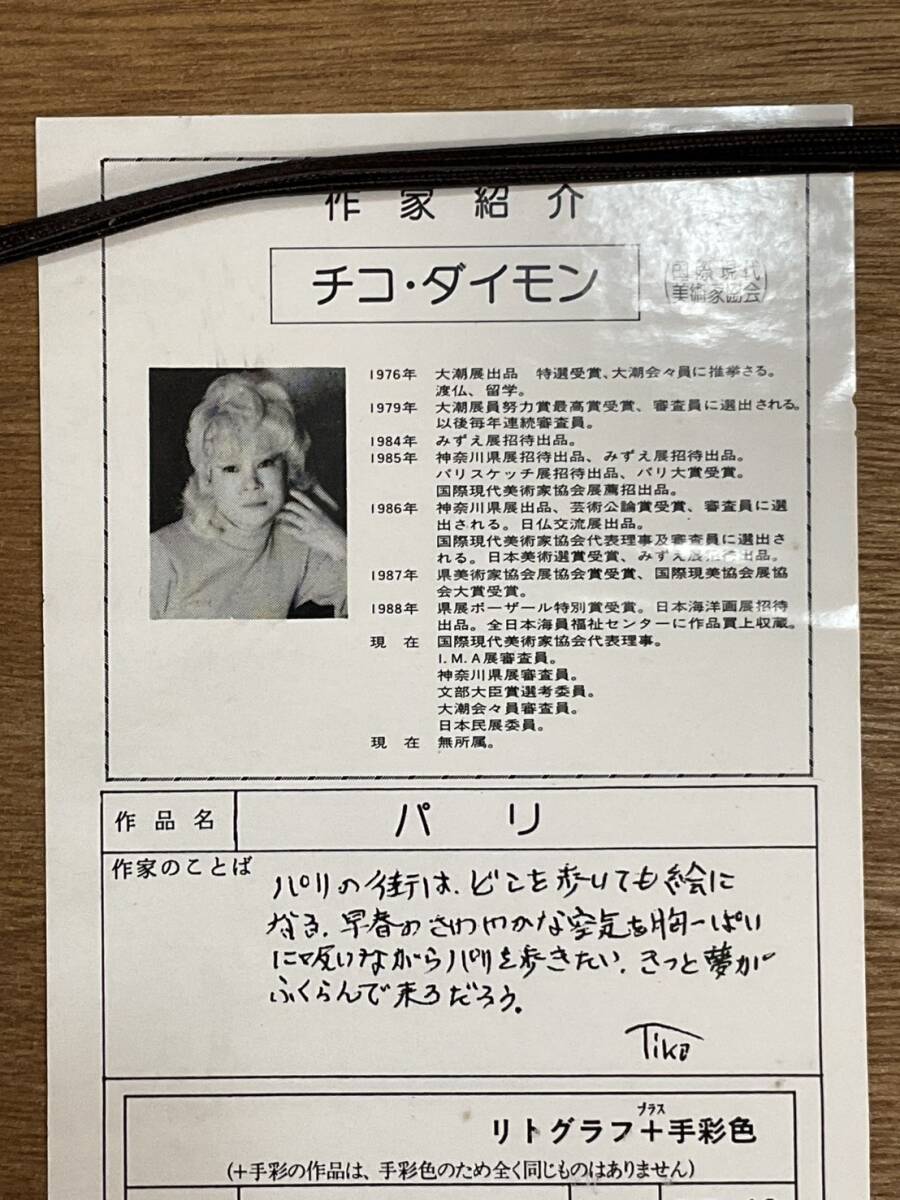 作家紹介
チコ・ダイモン
(国際現代
美術家協会)
1976年 大潮展出品 特選受賞、大潮会々員に推挙さる。
渡仏、留学。
1979年 大潮展員努力賞最高賞受賞、審査員に選出される。
以後毎年連続審査員。
1984年 みずえ展招待出品。
1985年 神奈川県展招待出品、みずえ展招待出品。
パリスケッチ展招待出品、パリ大賞受賞。
国際現代美術家協会展薦招出品。
1986年 神奈川県展出品、芸術公論賞受賞、審査員に選
出される。日仏交流展出品。
国際現代美術家協会代表理事及審査員に選出さ
れる。日本美術選賞受賞、みずえ展招待出品。
1987年 県美術家協会展協会賞受賞、国際現美協会展協
会大賞受賞。
1988年 県展ボーザール特別賞受賞。日本海洋画展招待
出品。全日本海員福祉センターに作品買上収蔵。
現在 国際現代美術家協会代表理事。
I.M.A展審査員。
神奈川県展審査員。
文部大臣賞選考委員。
大潮会々員審査員。
日本民展委員。
現在 無所属。
作品名 パリ
作家のことば
パリの街は、どこを歩いても絵に
なる。早春のさわやかな空気を胸一ぱい
に吸いながらパリを歩きたい。きっと夢が
ふくらんで来るだろう。
Tiko
プラス
リトグラフ+手彩色
(+手彩の作品は、手彩色のため全く同じものはありません)